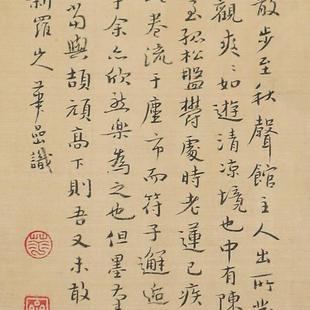 散步至秋聲館主人出所
觀爽〻如遊清凉境也中有陳
至孤松盤鬱處時老蓮已疾
卷流于廛市而符子邂逅
于余亦欣然樂為之也但墨
苟與頡頏高下則吾又未敢
新羅山人華嵒識